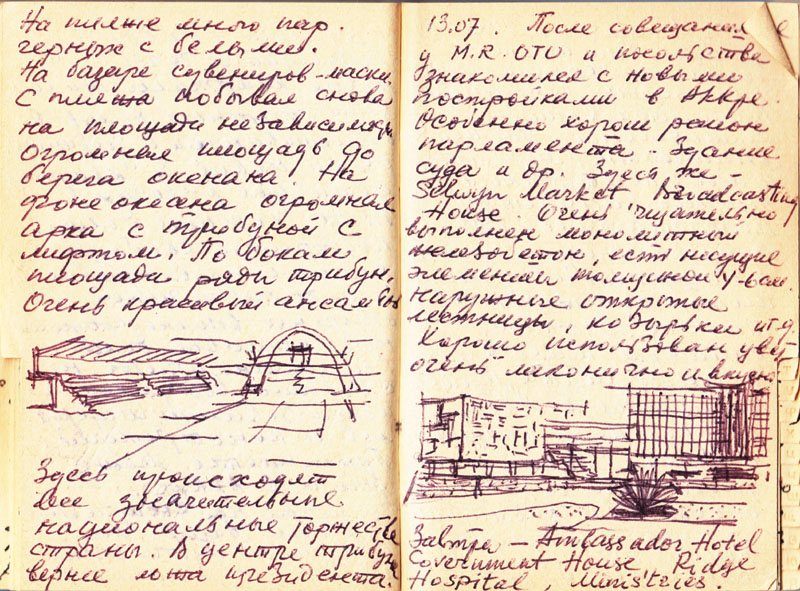 На пляже много пар.
черных с белыми.
На базаре сувениров-маски.
С пляжа побывал снова
на площади независимости
Огромная площадь до
берега океана. На
фоне океана огромная
арка с трибуной с
лифтом. По бокам
площади ряды трибун.
Очень красивый ансамбль
Здесь происходят
все значительные
национальные торжества
страны. В центре трибун
верхе ложа президента.
13.07. После совещания
у M.R. OTU и посольства
знакомился с новыми
постройками в Аккре.
Особенно хорош район
парламента. Здание
суда и др. Здесь же -
Selwyn Market Broadcasting
House. Очень тщательно
выполнен монолитный
железобетон, есть несущие
элементы толщиной 4-6см.
наружные открытые
лестницы, козырьки и т.д.
Хорошо использован цвет
очень лаконично и вкусно
Завтра - Ambassador Hotel
Government House Ridge
Hospital, Ministries.